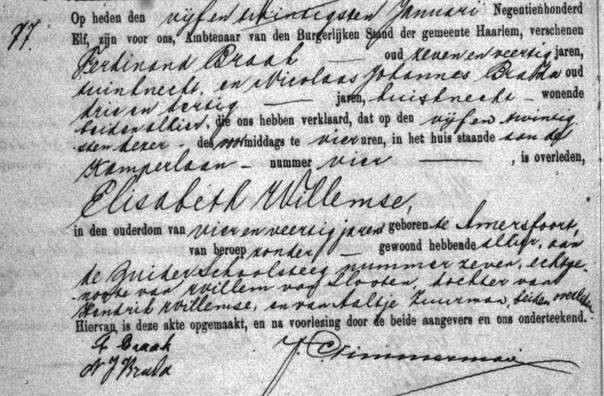 77.
Op heden den vijfentwintigsten Januari Negentienhonderd
Elf, zijn voor ons, Ambtenaar van den Burgerlijken Stand der gemeente Haarlem, verschenen
Ferdinand Braak oud zeven en veertig jaren,
tuinknecht, en Nicolaas Johannes Brada oud
drie en dertig jaren, huisknecht wonende
beiden alhier, die ons hebben verklaard, dat op den vijfen twintig
sten dezer des middags te vier uren, in het huis staande aan de
Kamperlaan nummer vier , is overleden,
Elisabeth Willemse,
in den ouderdom van vier en veertig jaren geboren te Amersfoort,
van beroep zonder gewoond hebbende alhier, aan
de Zuider Schoolsteeg nummer zeven, echtge-
noote van Willem van Slooten, dochter van
Hendrik Willemse, en van Aaltje Zuurman, beiden overleden
Hiervan, is deze akte opgemaakt, en na voorlezing door de beide aangevers en ons onderteekend.
F Braak
N J Brada